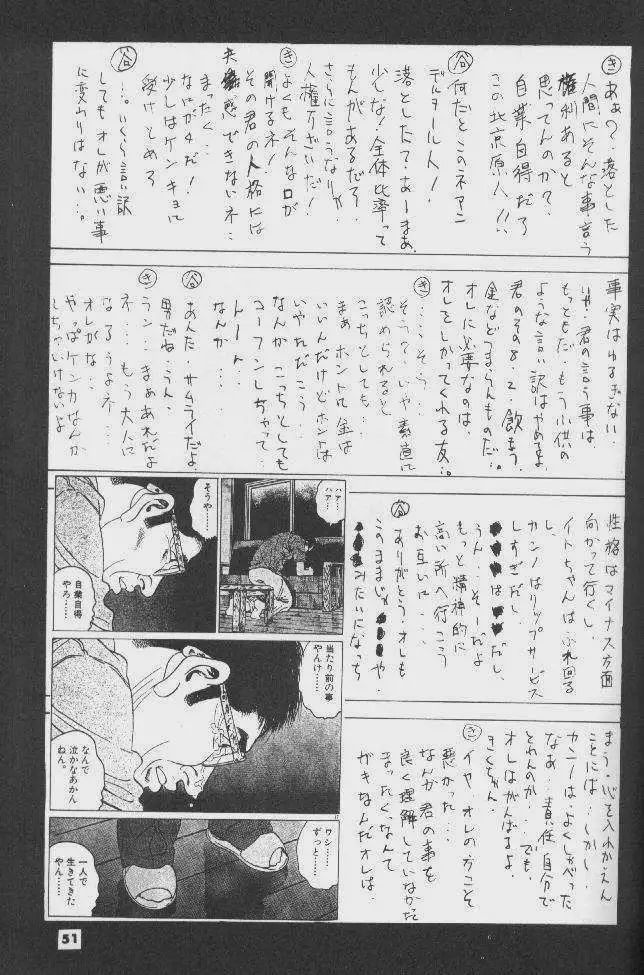 き あぁ？・落とした
人間にそんな事言う
権利あると
思ってんのか？・
自業自得だろ
この北京原人!!
谷 何だとこのネアン
デルタール人！
落としたて・あーまぁ、
少しな！全体比率って
もんがあるだろ・
さらに言うなりゃ
人権下ざいだ！
き よくもそんな口が
聞けるネ！
その君の人格には
共感できないネ…
まったく…
なにが4だ！
少しはケンキョに
受けとめろ
谷 …。いくら言い訳
しても オレが悪い事
に変わりはない…。
事実はゆるぎない
いや・君の言う事は
もっともだ もう子供の
ような言い訳はやめるよ
君のその8.2・飲もう。
金などつまらんものだ…。
オレに必要なのは、
オレをしかってくれる友…。
き …こ、そう…
そう？・いや素直に
認められると
こっちとしても
まぁ ホント 金は
いいんだけど ホントは
いやただこう…
なんか こっちとしても
コーフンしちゃって…
トートー
なんか…
谷 あんた サムライだよ
男だね…うん。
き ラン…まぁあれだよ
ネ…・もう大人に
なろうよネ…・
オレがな・
やっぱケンカなんか
しちゃいけないよ
性格はマイナス方面
向かって行くし、
イトちゃんはぶれ回る
し、
カンノはリップサービス
しすぎだし
は だし、
うん…そーだよ
もっと精神的に
高い所へ行こう
お互いに…・
谷 ありがとう・オレも
このままじゃ や・
みたいになっち
まう・心を入れかえん
ことには…しかし・
カンノは・よくしゃべった
なぁ…責任自分で
とれんのか…・でも、
オレはがんばるよ
きくちゃん。
き イヤ、オレの方こそ
悪かった…・
なんか君の事を
良く理解していなかった
まったくなんて
ガキなんだオレは、
ハァ…
ハァ…
そうや……
自業自得
やろ……
当たり前の事
やんけ……
なんで
泣かなあかん
ねん。
ワシ……
ずっと……
一人で
生きてきた
やん……
51